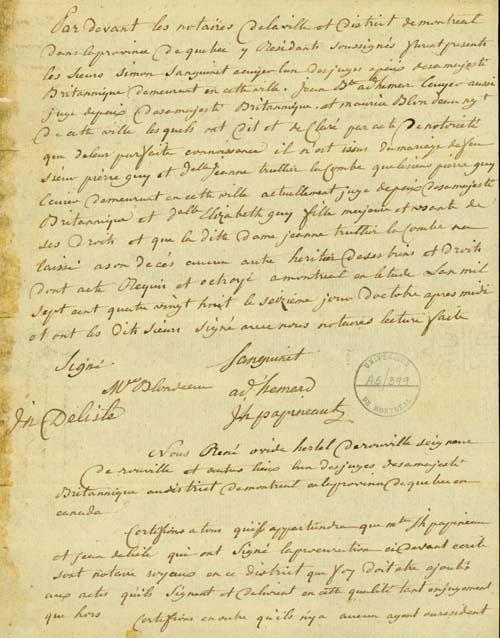 Par devant les notaires de la ville et District de montreal
dans la province de quebec y Residants soussignés furent presents
les sieurs simon Sanguinet ecuijer lun des juges a peix de sa majesté
Britannique demeurant en cette ville. Jean Bte adhemar Ecuijer aussi
juge de peix de sa majesté Britannique. et maurice Blondeau nyt
de cette ville lesquels ont dit et declaré par acte de notorieté
que de leur parfaite connoissance il n'est issu du mariage de feu
sieur pierre guy et delle jeanne truttier la Combe que le sieur pierre guy
Ecuier demeurant en cette ville actuellement juge de peix de sa majesté
Britannique et delle Elizabeth guy fille majeure et usante de
ses Droits et que la ditte dame jeanne truttier la Combe na
laissé a son decés aucun autre heritier de ses biens et droits
dont acte Requis et octroyé a montreal en letude Lan mil
sept cent quatre vingt huit le seizieme jour doctobre apres midi
et ont les dits sieurs signé avec nous notaires lecture faite
signé Sanguinet
Mce Blondeau adhemard
Jn Delisle Jh papineau
UNIVERSITÉ
A5/399
DE MONTRÉAL
Nous René ovide hertel Derouville seigneur
de rouville et autres lieux lun des juges de sa majesté
Britannique au district de montreal en la province de quebec en
canada
Certifions a tous qu'il appartiendra que mtre Jh papineau
et jean delisle qui ont signé la procuration ci devant ecrite
sont notaires royaux en ce district que foy doit etre ajoutée
aux actes qu'ils signent et delivrent en cette qualité tant en jugement
que hors Certifions en outre qu'il n'y a aucun agent ou resident